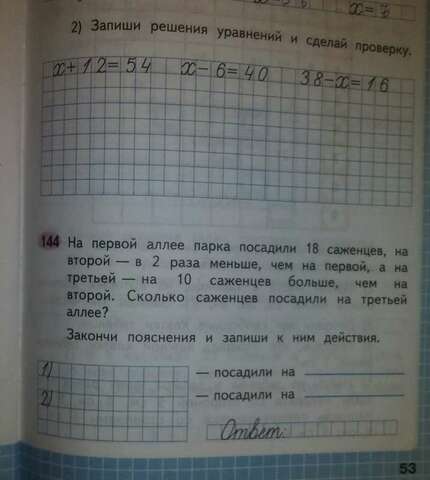 x=
2) Запиши решения уравнений и сделай проверку.
x+12=54 x-6=40 38-x=16
144 На первой аллее парка посадили 18 саженцев, на
второй — в 2 раза меньше, чем на первой, а на
третьей — на 10 саженцев больше, чем на
второй. Сколько саженцев посадили на третьей
аллее?
Закончи пояснения и запиши к ним действия.
1) — посадили на
2) — посадили на
Ответ:
53